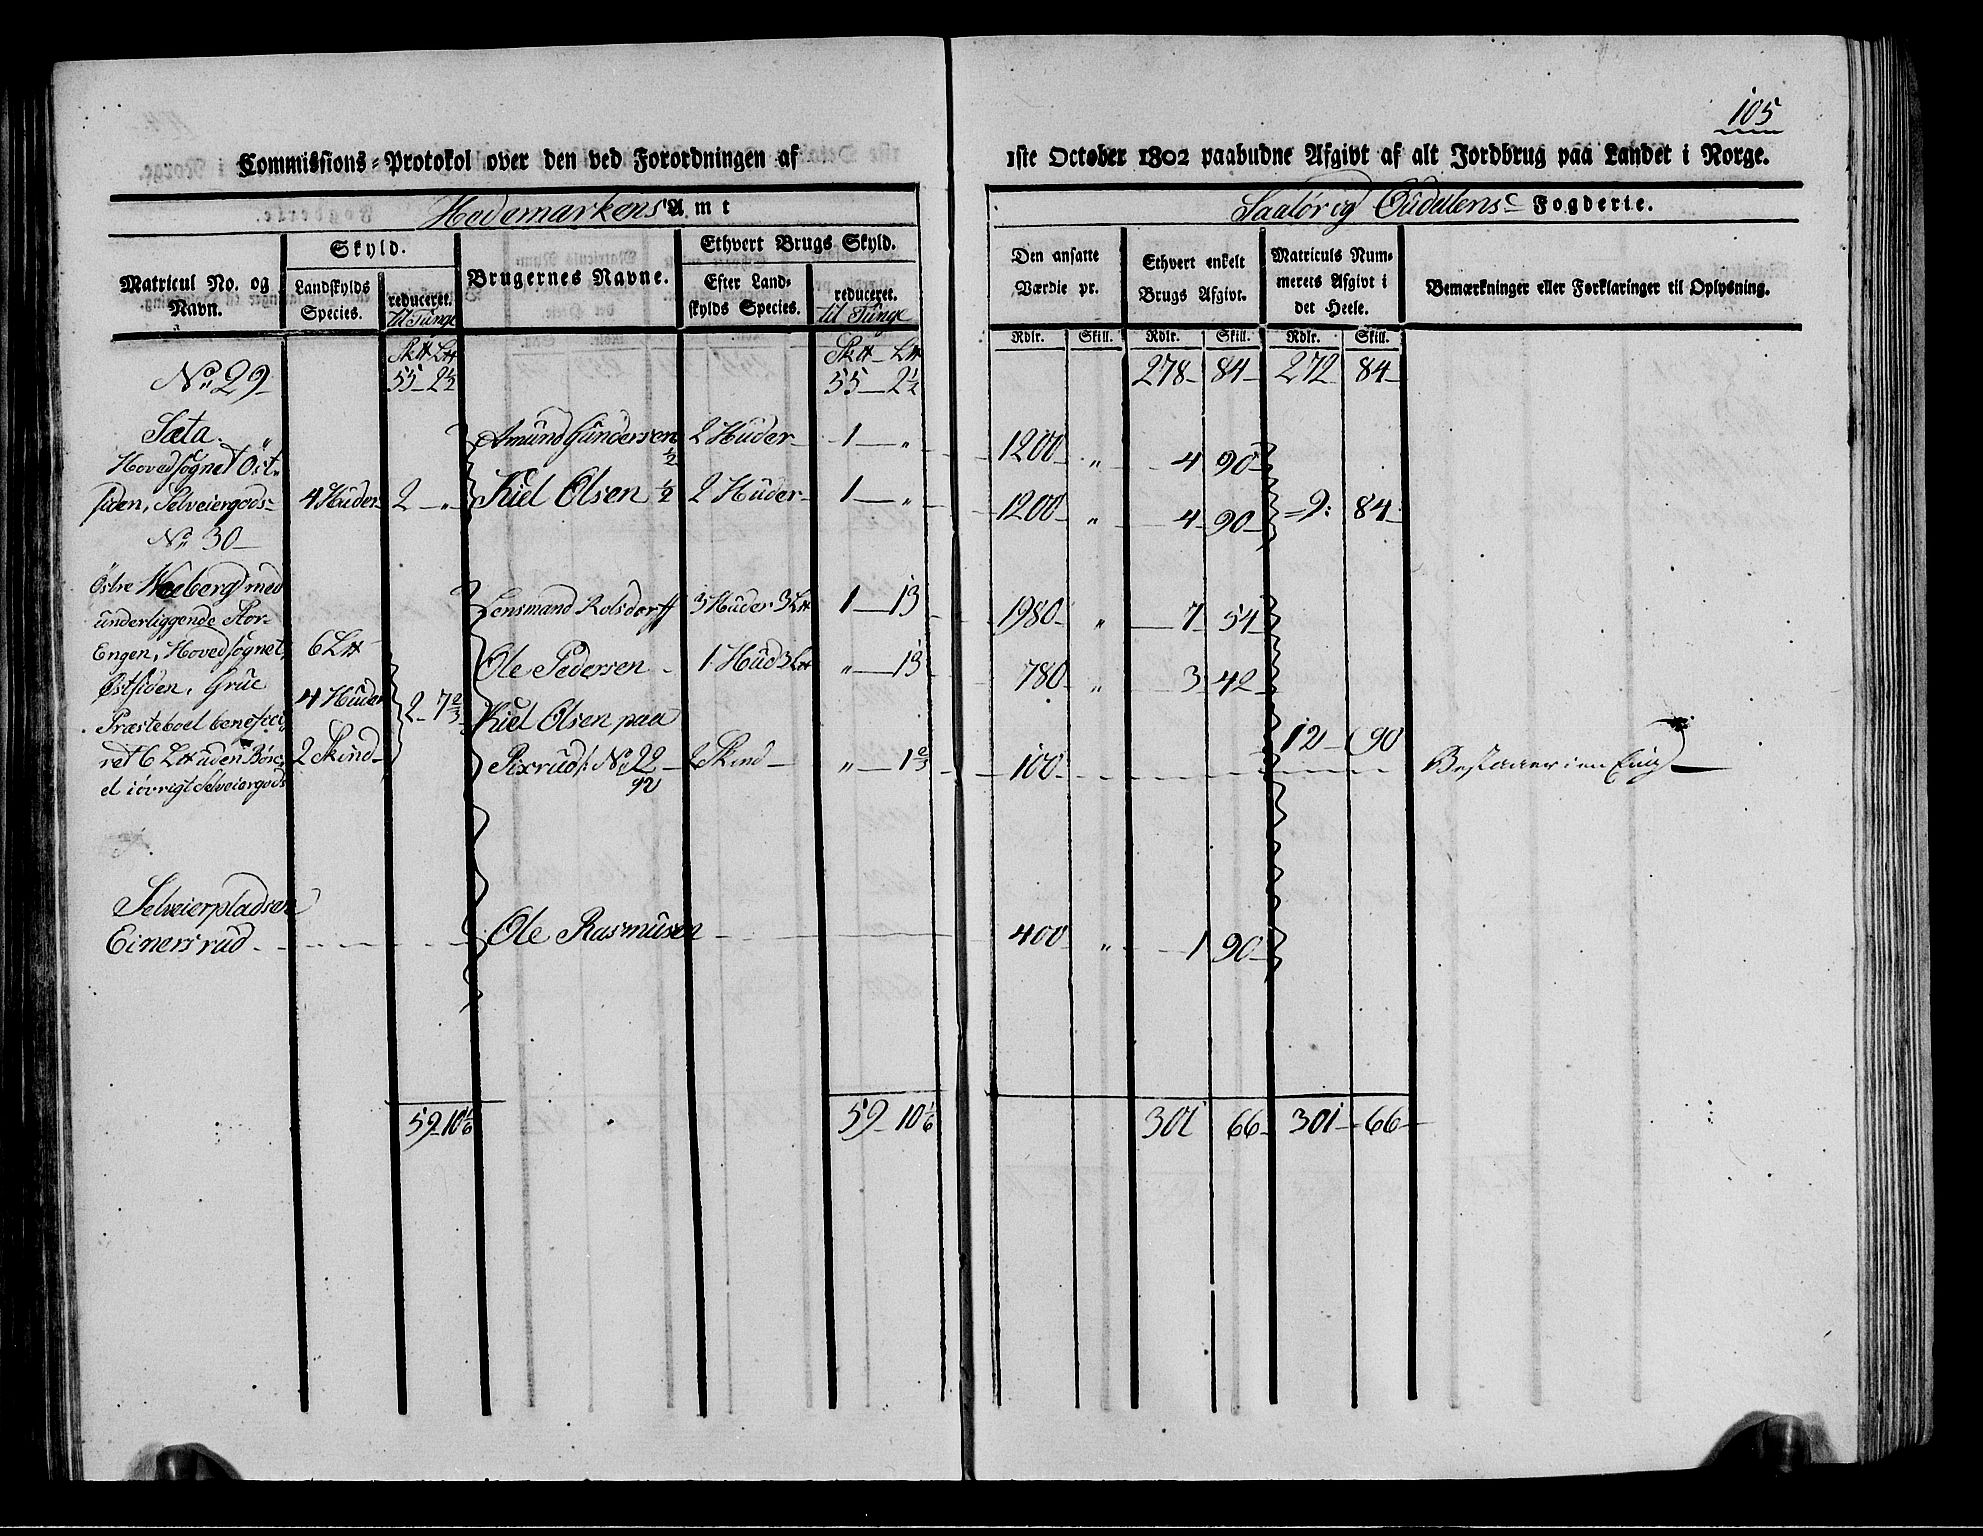 105
Commissions-Protokol over den ved Forordningen af 1ste October 1802 paabudne Afgivt af alt Jordbrug paa Landet i Norge.
Hedemarkens Amt
Saalør og Oudalens Fogderie.
Matricul No. og Navn.
Skyld.
Landskylds Species.
reduceret. til Tunge
Brugernes Navne.
Ethvert Brugs Skyld.
Efter Landskylds Species.
reduceret. til Tunge
Den ansatte Værdie pr.
Ethvert enkelt Brugs Afgivt.
Matriculs Nummerets Afgivt i det Heele.
Bemærkninger eller Forklaringer til Oplysning.
Rdlr. Skill. Rdlr. Skill. Rdlr. Skill.
No 29 55 2½ 55 2½ 278 84 272 84
Sæta.
Amund Gundersen ½ 2 Huder 1 „ 1200 „ 4 90
Hovedsognet Øst-
siden, Selveiergods 4 Huder 2 „ Kiel Olsen ½ 2 Huder 1 „ 1200 „ 4 90 9: 84
No 30
Østre Noeberg med
underliggende Stor- Lensmand Rolsdorff 3 Huder 3 L℔ 1 13 1980 „ 7 54
Engen, Hovedsognet, 6 L℔ Ole Pedersen 1 Hud 3 L℔ „ 13 780 „ 3 42
Østsiden, Grue 4 Huder 2 7⅔ Kiel Olsen paa
Præsteboel benefici
ret 6 L℔ uden Bòx 2 Skind Pixrud No 22 2 Skind „ 1⅔ 100 12 90 Bestaaer i en Eng
el iøvrigt Selveiergods
Selveierpladsen
Einersrud Ole Rasmusen 400 „ 1 90
59 10⅙ 59 10⅙ 301 66 301 66